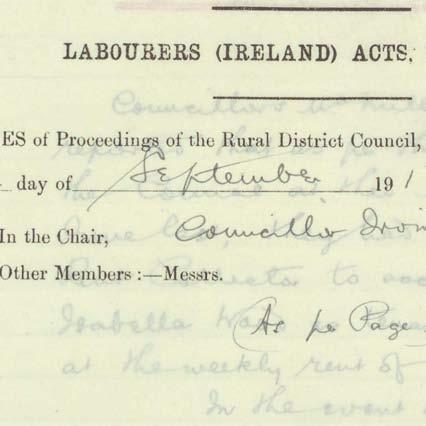 LABOURERS (IRELAND) ACTS.
ES of Proceedings of the Rural District Council,
day of September 191
In the Chair, Councillor Irvin
Other Members :—Messrs.
As per Page
Isabella
at the weekly rent of
In the event